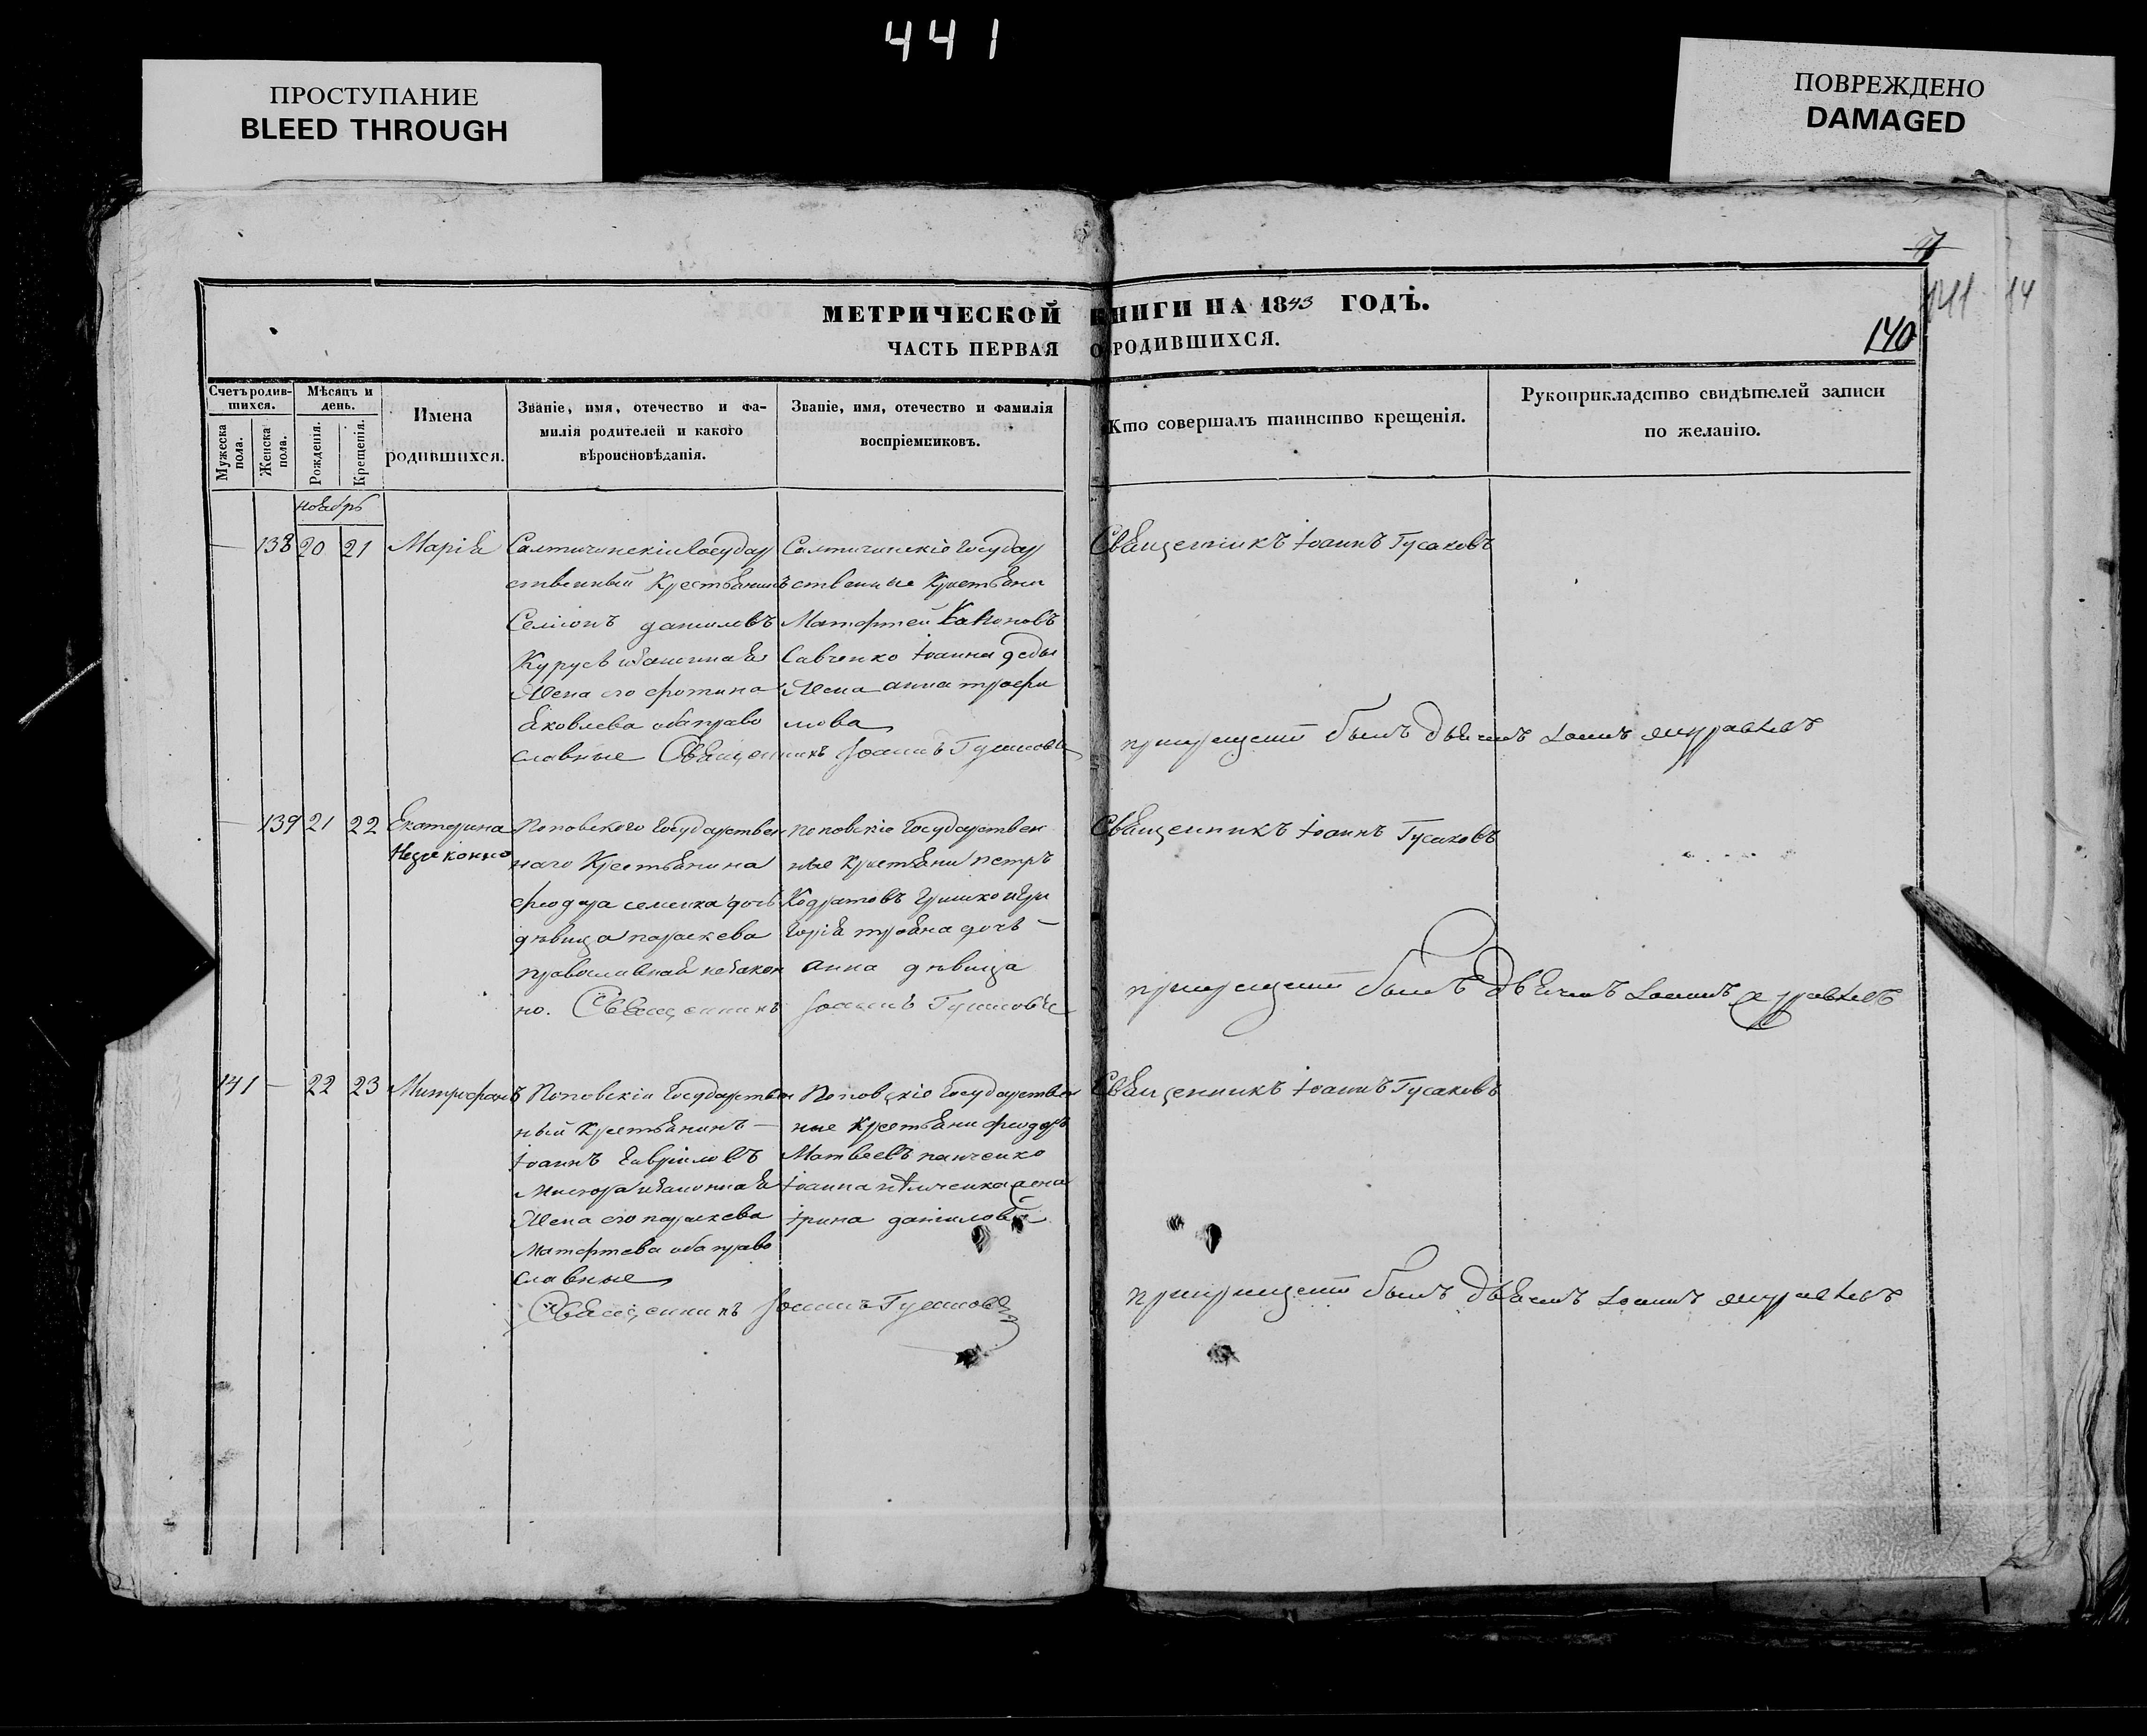 441
ПРОСТУПАНИЕ
BLEED THROUGH
ПОВРЕЖДЕНО
DAMAGED
7
141 14
МЕТРИЧЕСКОЙ КНИГИ НА 1843 ГОДЪ.
ЧАСТЬ ПЕРВАЯ О РОДИВШИХСЯ.
140
Счетъ родив-
шихся.
Мужеска
пола.
Женска
пола.
Мѣсяцъ и
день.
Рожденія.
Крещенія.
Имена
родившихся.
Званіе, имя, отечество и фа-
милія родителей и какого
вѣроисповѣданія.
Званіе, имя, отечество и фамилія
воспріемниковъ.
Кто совершалъ таинство крещенія.
Рукоприкладство свидѣтелей записи
по желанію.
ноябрь
— 138 20 21 Марія
Салтичинскій Государ
ственный Крестьянинъ
Семіонъ даниловъ
законная
жена его фотина
Яковлева оба право
славные
Салтичинскіе Государ
ственные Крестьяни
Матфтей
Савченко Іоанна
жена анна трофи
мова
Священникъ Іоаннъ Гусаковъ
Священникъ Іоаннъ Гусаковъ
при крещеніи былъ дьячекъ Іоаннъ журавлевъ
— 139 21 22 Екатерина
Незаконно
Поповского Государствен
наго Крестьянина
феодора семенка дочь
дѣвица параскева
православная незакон
но.
поповскіе Государствен
ные крестьяни петръ
Кодратовъ Гришко и Гри
горія трояна дочь —
анна дѣвица
Священникъ Іоаннъ Гусаковъ
Священникъ Іоаннъ Гусаковъ
при крещеніи былъ дьячекъ Іоаннъ журавлевъ
141 — 22 23 Митрофанъ
Поповскій Государствен
ный Крестьянинъ —
Іоаннъ Гавріиловъ
законная
жена его параскева
Матфтева оба право
славные
Поповскіе Государствен
ные Крестьяни феодоръ
Матвеевъ панченко
Іоанна жена
Ірина данилова
Священникъ Іоаннъ Гусаковъ
Священникъ Іоаннъ Гусаковъ
при крещеніи былъ дьячекъ Іоаннъ журавлевъ